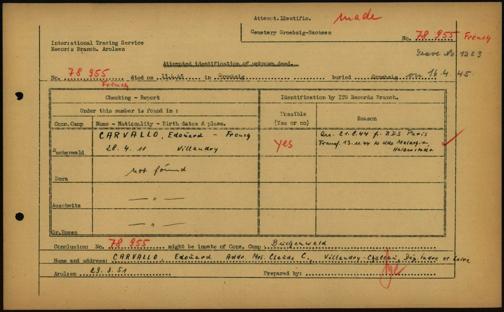 Attempt.Identific. made
Cemetery Groebzig-Sachsen
International Tracing Service
Records Branch, Arolsen
No. 78 955 French
Grave No. 1203
Attempted identification of unknown dead.
No. 78 955 died on in Groebzig buried Groebzig 16.4.45
French
Checking - Report
Identification by ITS Records Branch.
Under this number is found in :
Feasible
(Yes or no)
Reason
Conc.Camp Name - Nationality - Birth dates & place.
Buchenwald CARVALLO, Edouard - French
28.4.11 Villandry
yes
Arr. 21.8.44 fr. BDS Paris
Transf. 13.11.44 to Kdo
Dora not found
Auschwitz - " -
Gr.Rosen - " -
Conclusion: No. 78 955 might be inmate of Conc. Camp Buchenwald
Name and address: CARVALLO, Edouard Addr. Mrs. Claude C., Villandry - Château, Dep. Indre et Loire
Arolsen 29.3.51 Prepared by: